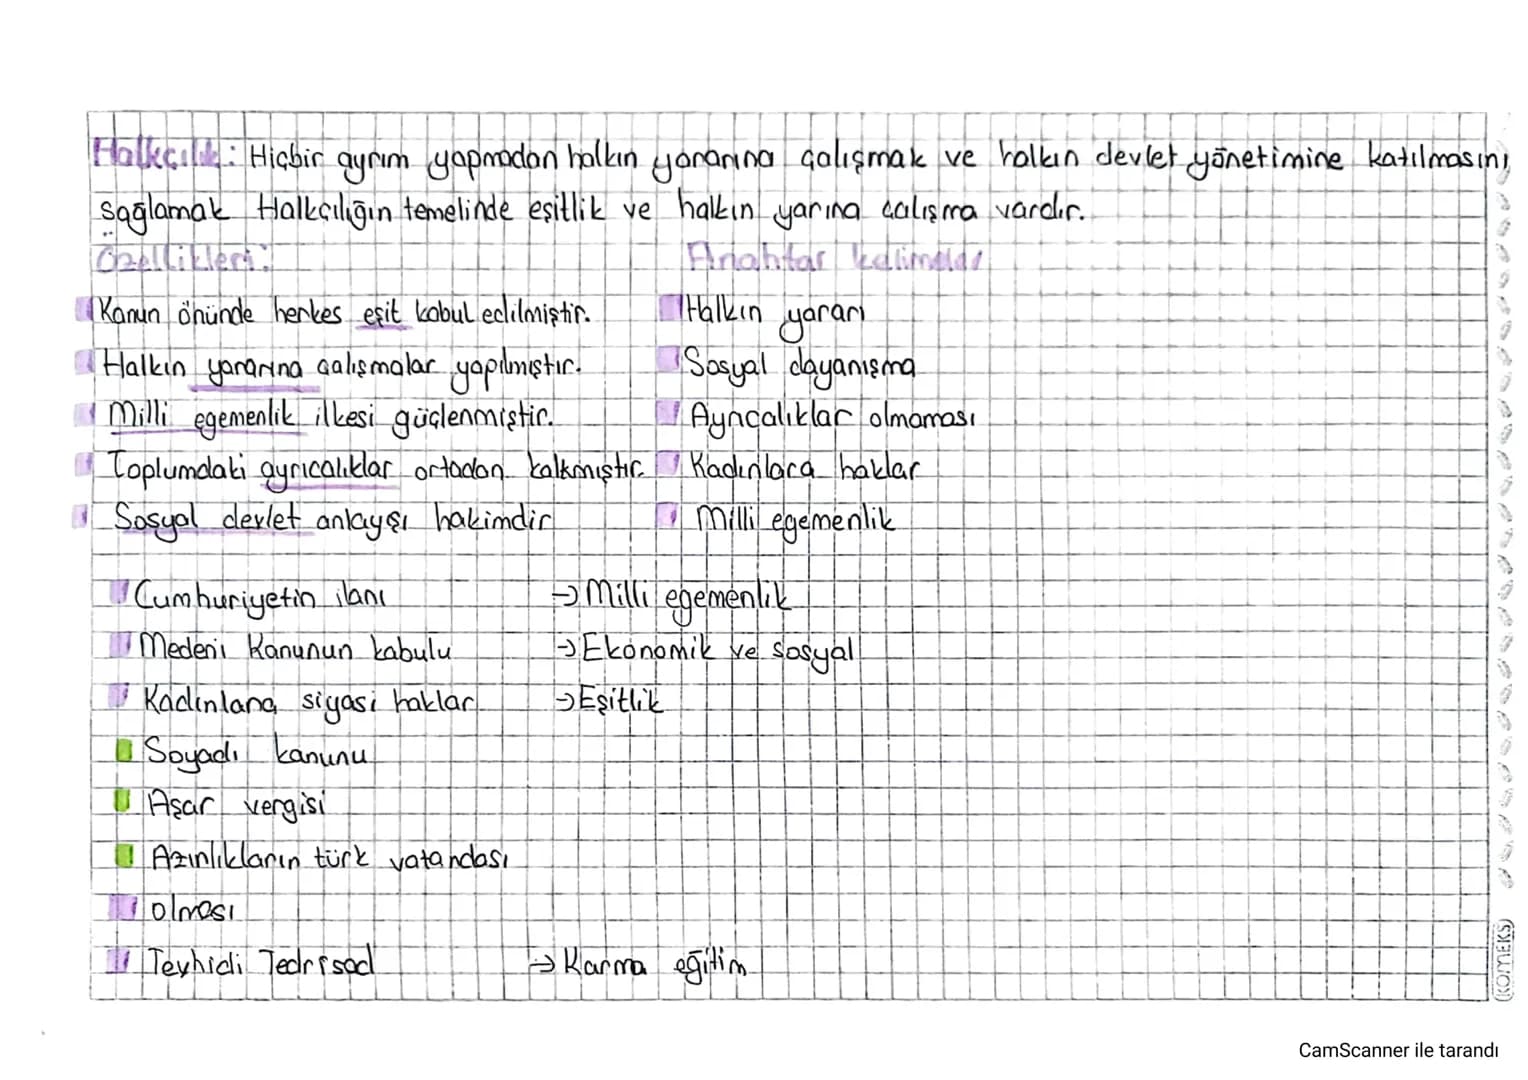 Halkçılık: Hiçbir ayrım yapmadan halkın yararına çalışmak ve halkın devlet yönetimine katılmasını
sağlamak Halkçılığın temelinde eşitlik ve halkın yarına çalışma vardır.
Özellikleri:
Anahtar kelimeler
Kanun önünde herkes eşit kabul edilmiştir.
Halkın yararı
Halkın yararına çalışmalar yapılmıştır.
Sosyal dayanışma
Milli egemenlik ilkesi güçlenmiştir.
Ayrıcalıklar olmaması
Toplumdaki ayrıcalıklar ortadan kalkmıştır.
Kadınlara haklar
Sosyal devlet anlayışı hakimdir
Milli egemenlik
Cumhuriyetin ilanı → Milli egemenlik
Medeni Kanunun kabulu → Ekonomik ve sosyal
Kadınlara siyasi haklar → Eşitlik
Soyadı kanunu
Aşar vergisi
Azınlıkların türk vatandası
olması
Tevhidi Tedrisad → Karma eğitim
KOMEKS
CamScanner ile tarandı